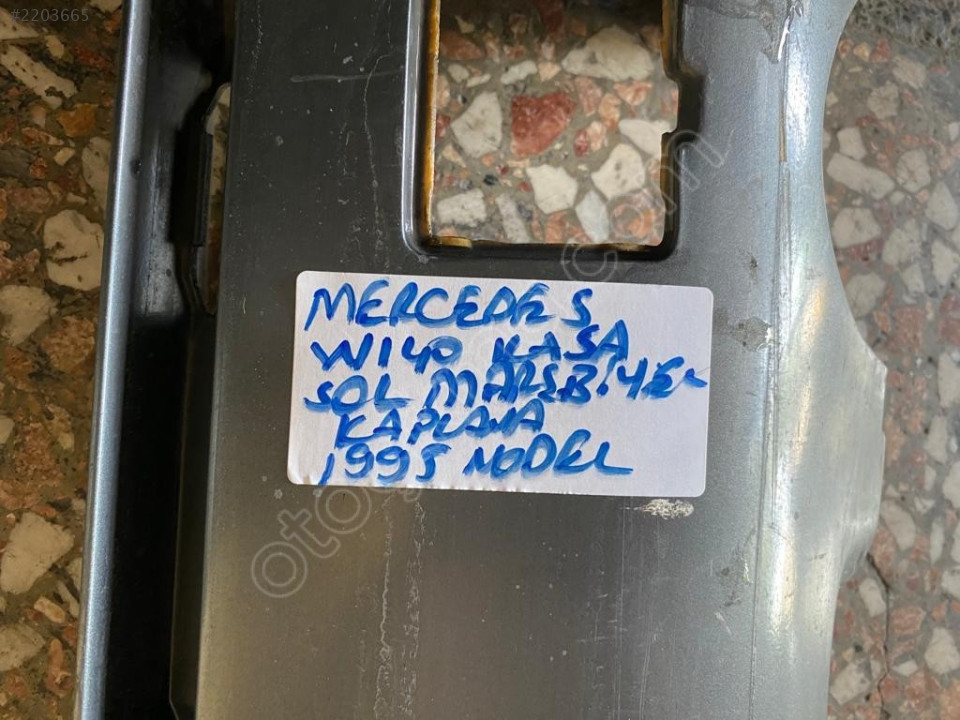 #2203665
MERCEDES
W140 KASA
SOL MARŞBİYEL
KAPLAMA
1995 MODEL